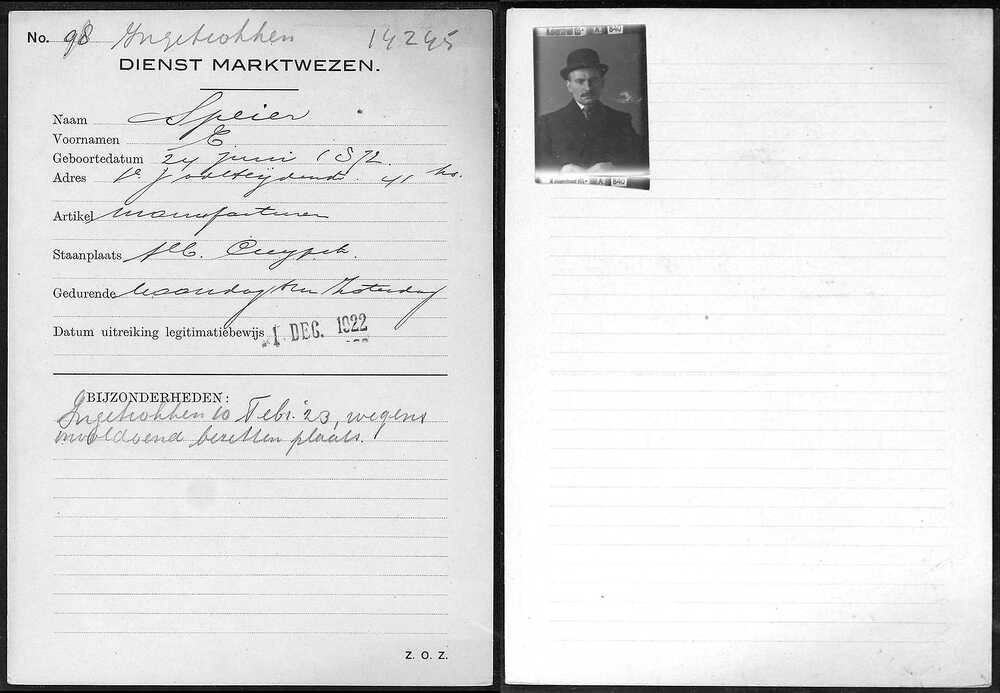 No. 98 Ingetrokken 14245
DIENST MARKTWEZEN.
Naam Speier
Voornamen E
Geboortedatum 24 juni 1872.
Adres 41 hs.
Artikel manufacturen
Staanplaats Alb. Cuypstr.
Gedurende Maandag t/m Zaterdag
Datum uitreiking legitimatiebewijs 1 DEC. 1922
BIJZONDERHEDEN:
Ingetrokken 10 Febr. 23, wegens
onvoldoend bezetten plaats.
Z. O. Z.
A 840
A 840